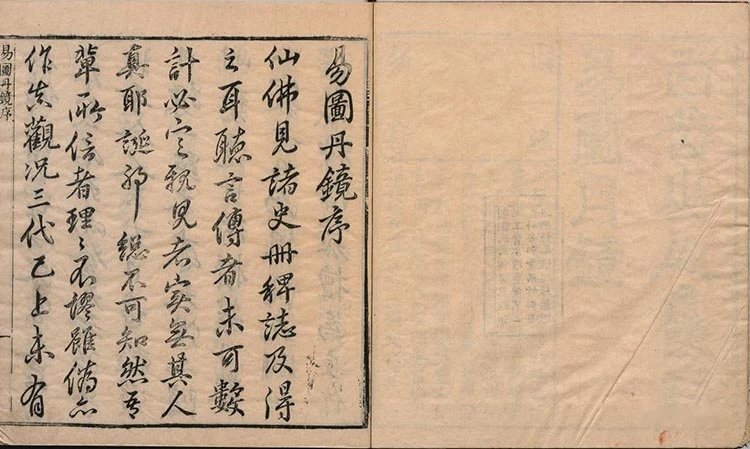 易圖丹鏡序
仙佛見諸史冊稗誌及得
之耳聽言傳者未可數
計必親見者實無其人
真耶誕耶總不可知然吾
輩所信者理理不謬雖僞亦
作真觀況三代已上未有
易圖丹鏡序